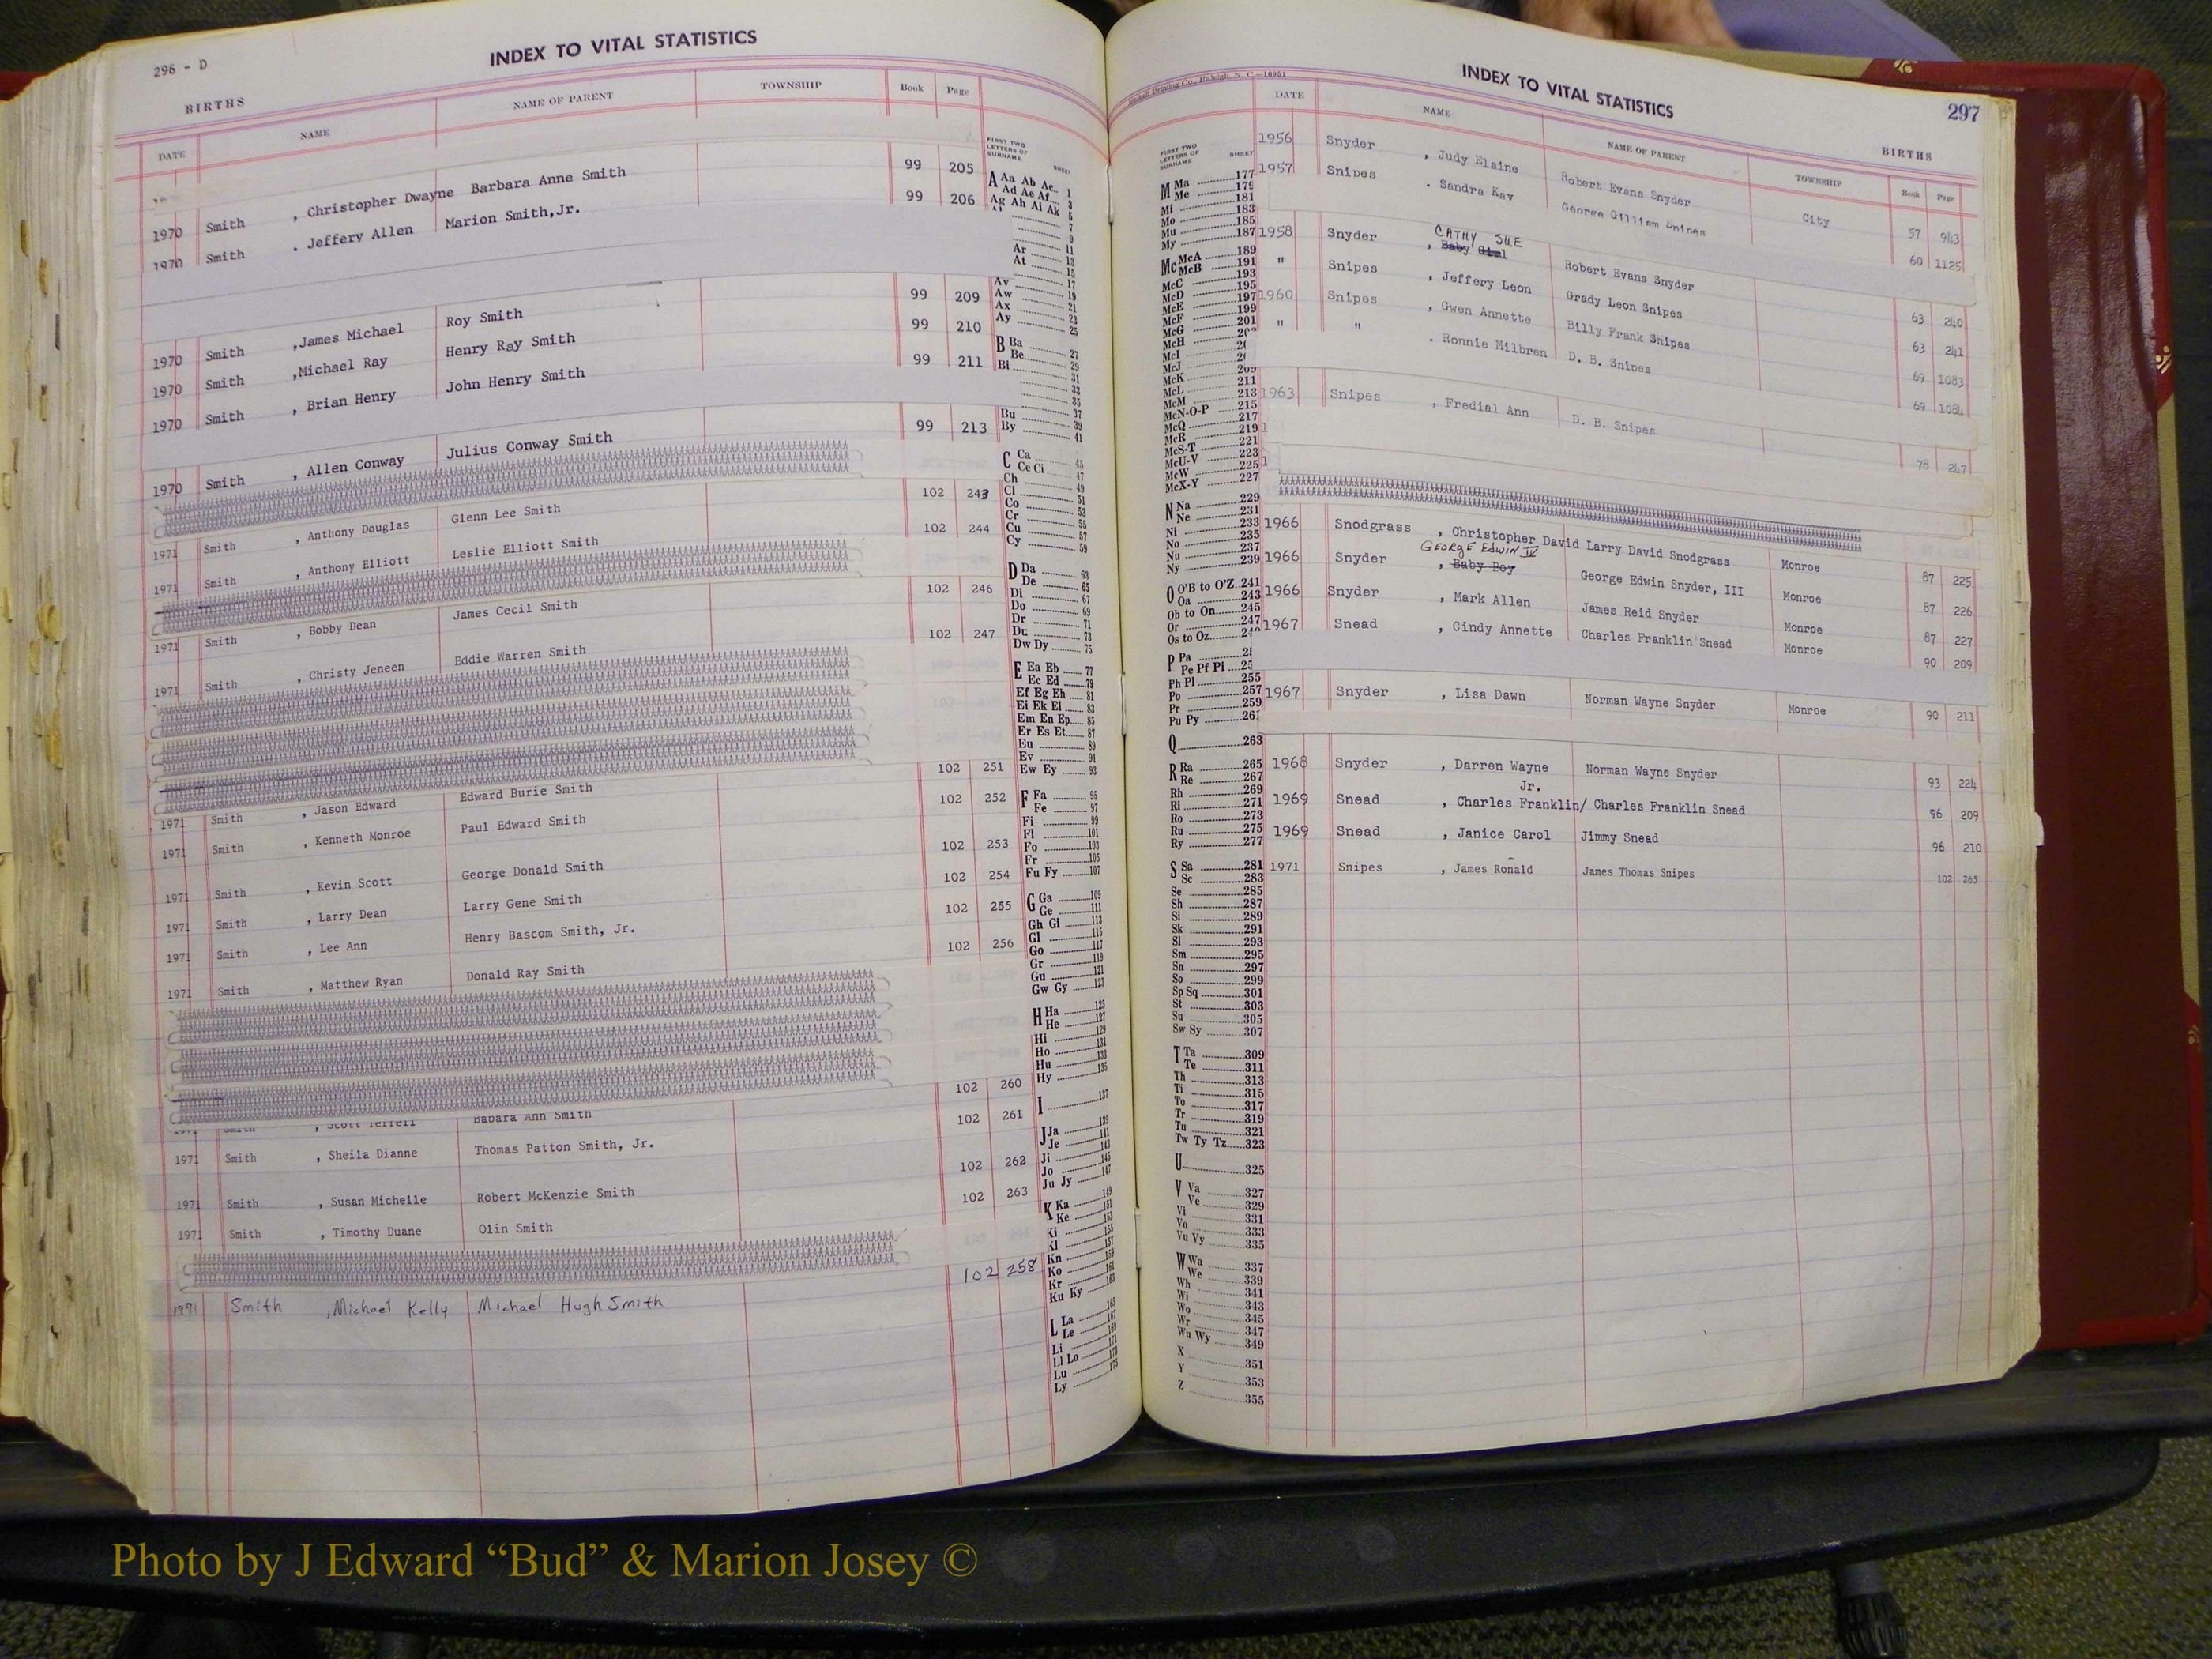 296 - D
INDEX TO VITAL STATISTICS
BIRTHS
DATE NAME NAME OF PARENT TOWNSHIP Book Page
1970 Smith , Christopher Dwayne Barbara Anne Smith 99 205
1970 Smith . Jeffery Allen Marion Smith,Jr. 99 206
1970 Smith ,James Michael Roy Smith 99 209
1970 Smith ,Michael Ray Henry Ray Smith 99 210
1970 Smith , Brian Henry John Henry Smith 99 211
1970 Smith , Allen Conway Julius Conway Smith 99 213
1971 Smith , Anthony Douglas Glenn Lee Smith 102 243
1971 Smith , Anthony Elliott Leslie Elliott Smith 102 244
1971 Smith , Bobby Dean James Cecil Smith 102 246
1971 Smith , Christy Jeneen Eddie Warren Smith 102 247
1971 Smith , Jason Edward Edward Burie Smith 102 251
1971 Smith , Kenneth Monroe Paul Edward Smith 102 252
1971 Smith , Kevin Scott George Donald Smith 102 253
1971 Smith , Larry Dean Larry Gene Smith 102 254
1971 Smith , Lee Ann Henry Bascom Smith, Jr. 102 255
1971 Smith , Matthew Ryan Donald Ray Smith 102 256
Smith , Scott Terrell Babara Ann Smith 102 260
1971 Smith , Sheila Dianne Thomas Patton Smith, Jr. 102 261
1971 Smith , Susan Michelle Robert McKenzie Smith 102 262
1971 Smith , Timothy Duane Olin Smith 102 263
1971 Smith ,Michael Kelly Michael Hugh Smith 102 258
FIRST TWO LETTERS OF SURNAME SHEET
A Aa Ab Ac 1
Ad Ae Af 3
Ag Ah Ai Ak 5
7
9
Ar 11
At 13
15
Av 17
Aw 19
Ax 21
Ay 23
25
B Ba 27
Be 29
Bi 31
33
35
Bu 37
By 39
41
C Ca 45
Ce Ci 47
Ch 49
Cl 51
Co 53
Cr 55
Cu 57
Cy 59
D Da 63
De 65
Di 67
Do 69
Dr 71
Du 73
Dw Dy 75
E Ea Eb 77
Ec Ed 79
Ef Eg Eh 81
Ei Ek El 83
Em En Ep 85
Er Es Et 87
Eu 89
Ev 91
Ew Ey 93
F Fa 95
Fe 97
Fi 99
Fl 101
Fo 103
Fr 105
Fu Fy 107
G Ga 109
Ge 111
Gh Gi 113
Gl 115
Go 117
Gr 119
Gu 121
Gw Gy 123
H Ha 125
He 127
Hi 129
Ho 131
Hu 133
Hy 135
I 137
J Ja 139
Je 141
Ji 143
Jo 145
Ju Jy 147
K Ka 149
Ke 151
Ki 153
Kl 155
Kn 157
Ko 159
Kr 161
Ku Ky 163
L La 165
Le 167
Li 169
Ll Lo 171
Lu 173
Ly 175
Mitchell Printing Co., Raleigh, N. C.—10951
INDEX TO VITAL STATISTICS
297
BIRTHS
DATE NAME NAME OF PARENT TOWNSHIP Book Page
1956 Snyder , Judy Elaine Robert Evans Snyder City 57 943
1957 Snipes . Sandra Kay George Gilliam Snipes 60 1125
CATHY SUE
1958 Snyder , Baby Girl Robert Evans Snyder 63 240
" Snipes , Jeffery Leon Grady Leon Snipes 63 241
1960 Snipes , Gwen Annette Billy Frank Snipes 69 1083
" " . Ronnie Milbren D. B. Snipes 69 1084
1963 Snipes , Fredial Ann D. B. Snipes 78 247
1966 Snodgrass , Christopher David Larry David Snodgrass Monroe 87 225
GEORGE EDWIN IV
1966 Snyder , Baby Boy George Edwin Snyder, III Monroe 87 226
1966 Snyder , Mark Allen James Reid Snyder Monroe 87 227
1967 Snead , Cindy Annette Charles Franklin Snead Monroe 90 209
1967 Snyder , Lisa Dawn Norman Wayne Snyder Monroe 90 211
1968 Snyder , Darren Wayne Norman Wayne Snyder 93 224
Jr.
1969 Snead , Charles Franklin/ Charles Franklin Snead 96 209
1969 Snead , Janice Carol Jimmy Snead 96 210
1971 Snipes , James Ronald James Thomas Snipes 102 265
FIRST TWO LETTERS OF SURNAME SHEET
M Ma 177
Me 179
Mi 181
Mo 183
Mu 185
My 187
Mc McA 189
McB 191
McC 193
McD 195
McE 197
McF 199
McG 201
McH
McI
McJ
McK 209
McL 211
McM 213
McN-O-P 215
McQ 217
McR 219
McS-T 221
McU-V 223
McW 225
McX-Y 227
N Na 229
Ne 231
Ni 233
No 235
Nu 237
Ny 239
O O'B to O'Z 241
Oa 243
Ob to On 245
Or 247
Os to Oz
P Pa
Pe Pf Pi
Ph Pl 255
Po 257
Pr 259
Pu Py 261
Q 263
R Ra 265
Re 267
Rh 269
Ri 271
Ro 273
Ru 275
Ry 277
S Sa 281
Sc 283
Se 285
Sh 287
Si 289
Sk 291
Sl 293
Sm 295
Sn 297
So 299
Sp Sq 301
St 303
Su 305
Sw Sy 307
T Ta 309
Te 311
Th 313
Ti 315
To 317
Tr 319
Tu 321
Tw Ty Tz 323
U 325
V Va 327
Ve 329
Vi 331
Vo 333
Vu Vy 335
W Wa 337
We 339
Wh 341
Wi 343
Wo 345
Wr 347
Wu Wy 349
X 351
Y 353
Z 355
Photo by J Edward “Bud” & Marion Josey ©